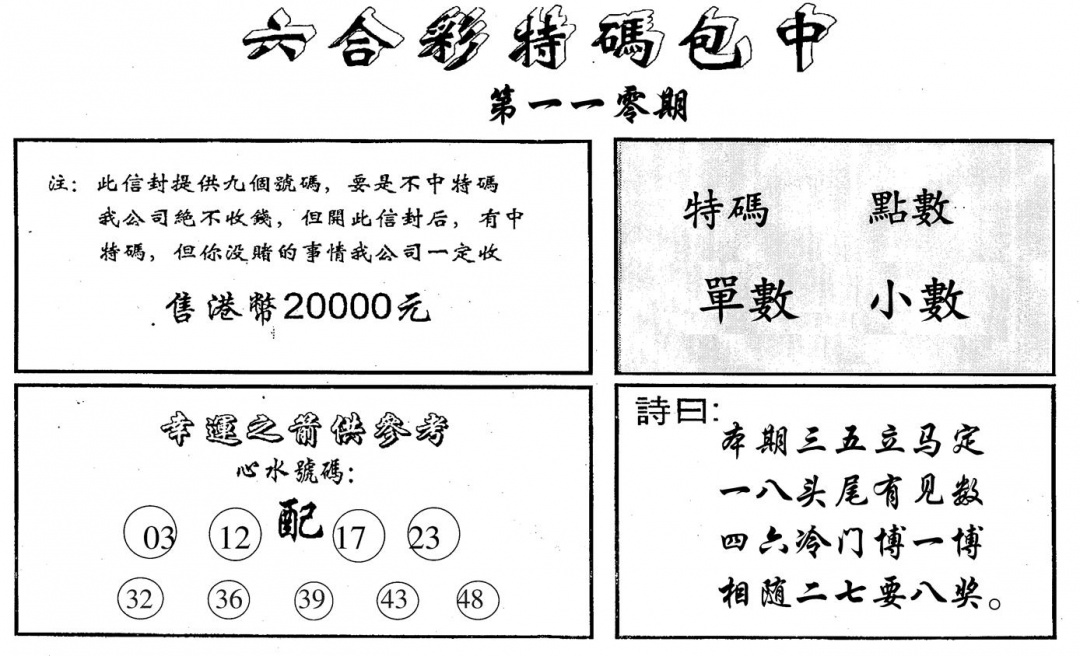 六合彩特碼包中
第一一零期
注：此信封提供九個號碼，要是不中特碼
我公司絕不收錢，但開此信封后，有中
特碼，但你没賭的事情我公司一定收
售港幣20000元
特碼 點數
單數 小數
幸運之箭供參考
心水號碼：
配
03 12 17 23
32 36 39 43 48
詩曰：
本期三五立马定
一八头尾有见数
四六冷门博一博
相随二七要八奖。